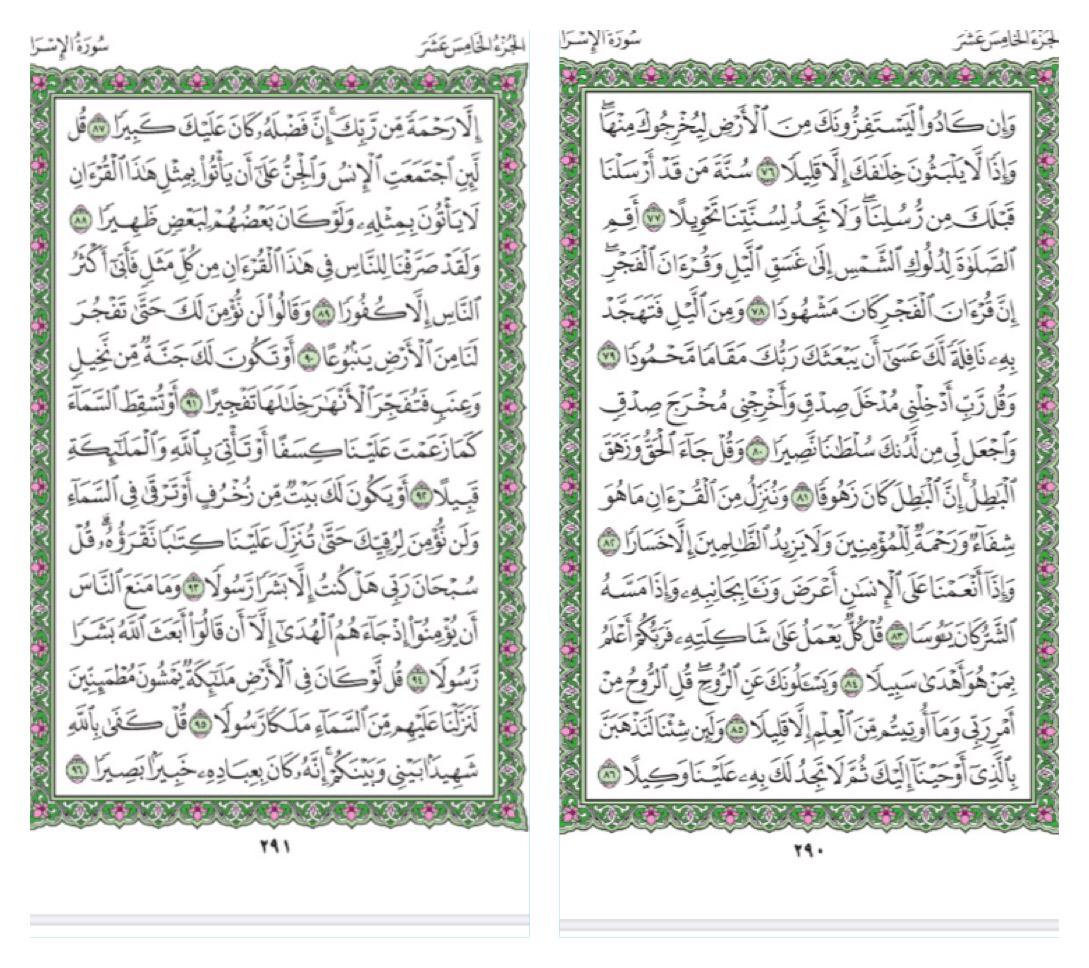 الجزء الخامس عشر
سورة الإسرا
وَإِن كَادُوا۟ لَيَسْتَفِزُّونَكَ مِنَ ٱلْأَرْضِ لِيُخْرِجُوكَ مِنْهَا ۖ
وَإِذًا لَّا يَلْبَثُونَ خِلَـٰفَكَ إِلَّا قَلِيلًا ٧٦ سُنَّةَ مَن قَدْ أَرْسَلْنَا
قَبْلَكَ مِن رُّسُلِنَا ۖ وَلَا تَجِدُ لِسُنَّتِنَا تَحْوِيلًا ٧٧ أَقِمِ
ٱلصَّلَوٰةَ لِدُلُوكِ ٱلشَّمْسِ إِلَىٰ غَسَقِ ٱلَّيْلِ وَقُرْءَانَ ٱلْفَجْرِ ۖ
إِنَّ قُرْءَانَ ٱلْفَجْرِ كَانَ مَشْهُودًا ٧٨ وَمِنَ ٱلَّيْلِ فَتَهَجَّدْ
بِهِۦ نَافِلَةً لَّكَ عَسَىٰٓ أَن يَبْعَثَكَ رَبُّكَ مَقَامًا مَّحْمُودًا ٧٩
وَقُل رَّبِّ أَدْخِلْنِى مُدْخَلَ صِدْقٍ وَأَخْرِجْنِى مُخْرَجَ صِدْقٍ
وَٱجْعَل لِّى مِن لَّدُنكَ سُلْطَـٰنًا نَّصِيرًا ٨٠ وَقُلْ جَآءَ ٱلْحَقُّ وَزَهَقَ
ٱلْبَـٰطِلُ ۚ إِنَّ ٱلْبَـٰطِلَ كَانَ زَهُوقًا ٨١ وَنُنَزِّلُ مِنَ ٱلْقُرْءَانِ مَا هُوَ
شِفَآءٌ وَرَحْمَةٌ لِّلْمُؤْمِنِينَ وَلَا يَزِيدُ ٱلظَّـٰلِمِينَ إِلَّا خَسَارًا ٨٢
وَإِذَآ أَنْعَمْنَا عَلَى ٱلْإِنسَـٰنِ أَعْرَضَ وَنَـَٔا بِجَانِبِهِۦ وَإِذَا مَسَّهُ
ٱلشَّرُّ كَانَ يَـُٔوسًا ٨٣ قُلْ كُلٌّ يَعْمَلُ عَلَىٰ شَاكِلَتِهِۦ فَرَبُّكُمْ أَعْلَمُ
بِمَنْ هُوَ أَهْدَىٰ سَبِيلًا ٨٤ وَيَسْـَٔلُونَكَ عَنِ ٱلرُّوحِ ۖ قُلِ ٱلرُّوحُ مِنْ
أَمْرِ رَبِّى وَمَآ أُوتِيتُم مِّنَ ٱلْعِلْمِ إِلَّا قَلِيلًا ٨٥ وَلَئِن شِئْنَا لَنَذْهَبَنَّ
بِٱلَّذِىٓ أَوْحَيْنَآ إِلَيْكَ ثُمَّ لَا تَجِدُ لَكَ بِهِۦ عَلَيْنَا وَكِيلًا ٨٦
٢٩٠
الجزء الخامس عشر
سورة الإسرا
إِلَّا رَحْمَةً مِّن رَّبِّكَ ۚ إِنَّ فَضْلَهُۥ كَانَ عَلَيْكَ كَبِيرًا ٨٧ قُل
لَّئِنِ ٱجْتَمَعَتِ ٱلْإِنسُ وَٱلْجِنُّ عَلَىٰٓ أَن يَأْتُوا۟ بِمِثْلِ هَـٰذَا ٱلْقُرْءَانِ
لَا يَأْتُونَ بِمِثْلِهِۦ وَلَوْ كَانَ بَعْضُهُمْ لِبَعْضٍ ظَهِيرًا ٨٨
وَلَقَدْ صَرَّفْنَا لِلنَّاسِ فِى هَـٰذَا ٱلْقُرْءَانِ مِن كُلِّ مَثَلٍ فَأَبَىٰٓ أَكْثَرُ
ٱلنَّاسِ إِلَّا كُفُورًا ٨٩ وَقَالُوا۟ لَن نُّؤْمِنَ لَكَ حَتَّىٰ تَفْجُرَ
لَنَا مِنَ ٱلْأَرْضِ يَنۢبُوعًا ٩٠ أَوْ تَكُونَ لَكَ جَنَّةٌ مِّن نَّخِيلٍ
وَعِنَبٍ فَتُفَجِّرَ ٱلْأَنْهَـٰرَ خِلَـٰلَهَا تَفْجِيرًا ٩١ أَوْ تُسْقِطَ ٱلسَّمَآءَ
كَمَا زَعَمْتَ عَلَيْنَا كِسَفًا أَوْ تَأْتِىَ بِٱللَّهِ وَٱلْمَلَـٰٓئِكَةِ
قَبِيلًا ٩٢ أَوْ يَكُونَ لَكَ بَيْتٌ مِّن زُخْرُفٍ أَوْ تَرْقَىٰ فِى ٱلسَّمَآءِ
وَلَن نُّؤْمِنَ لِرُقِيِّكَ حَتَّىٰ تُنَزِّلَ عَلَيْنَا كِتَـٰبًا نَّقْرَؤُهُۥ ۗ قُلْ
سُبْحَانَ رَبِّى هَلْ كُنتُ إِلَّا بَشَرًا رَّسُولًا ٩٣ وَمَا مَنَعَ ٱلنَّاسَ
أَن يُؤْمِنُوٓا۟ إِذْ جَآءَهُمُ ٱلْهُدَىٰٓ إِلَّآ أَن قَالُوٓا۟ أَبَعَثَ ٱللَّهُ بَشَرًا
رَّسُولًا ٩٤ قُل لَّوْ كَانَ فِى ٱلْأَرْضِ مَلَـٰٓئِكَةٌ يَمْشُونَ مُطْمَئِنِّينَ
لَنَزَّلْنَا عَلَيْهِم مِّنَ ٱلسَّمَآءِ مَلَكًا رَّسُولًا ٩٥ قُلْ كَفَىٰ بِٱللَّهِ
شَهِيدًۢا بَيْنِى وَبَيْنَكُمْ ۚ إِنَّهُۥ كَانَ بِعِبَادِهِۦ خَبِيرًۢا بَصِيرًا ٩٦
٢٩١